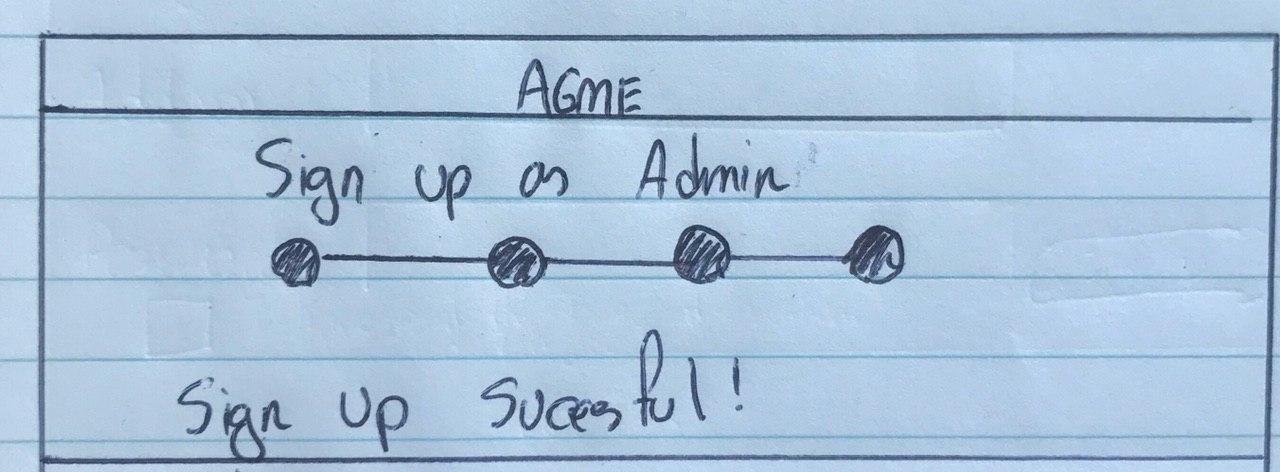 AGME
Sign up as Admin
Sign up Sucessful!